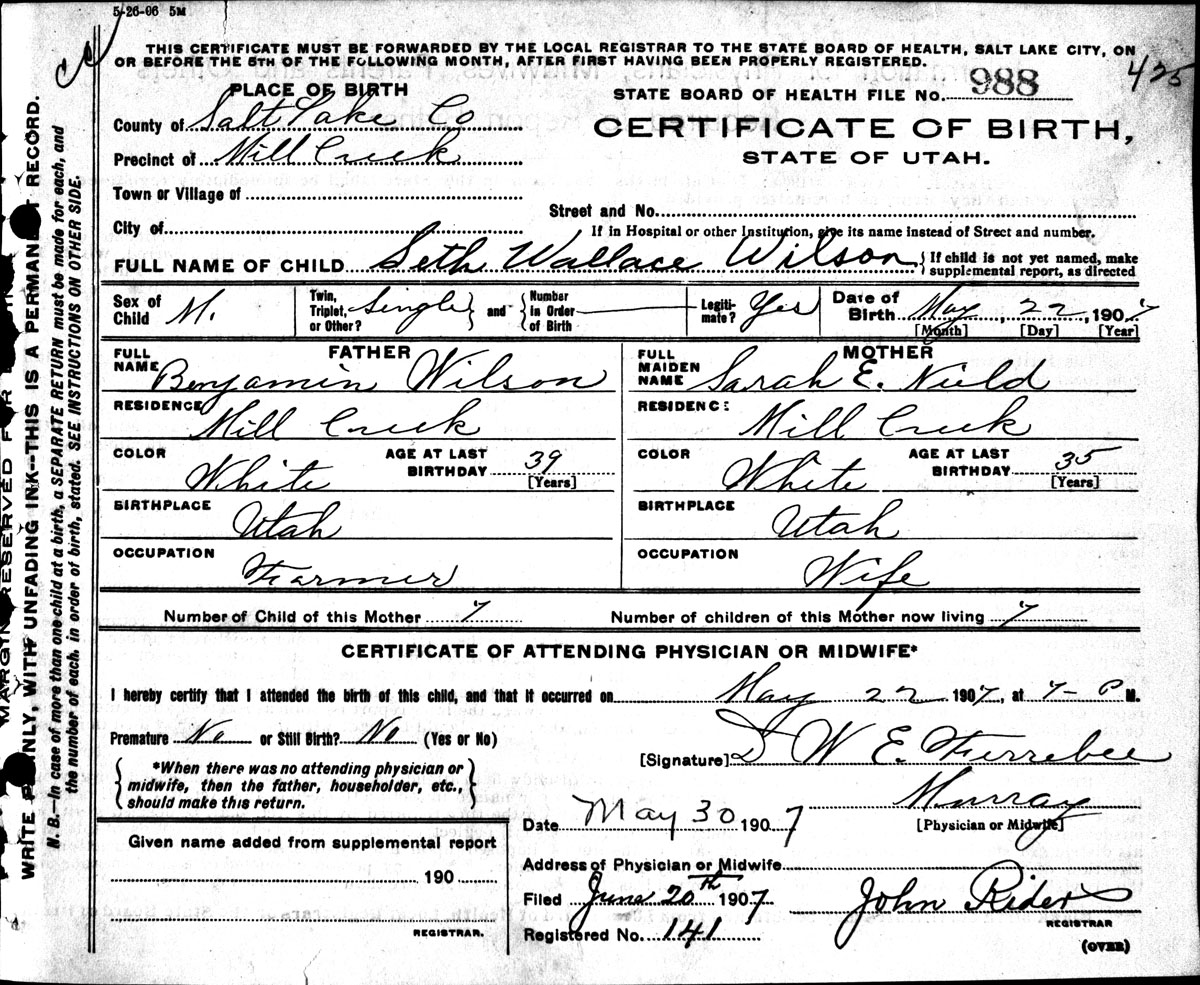 5-26-06 5M
THIS CERTIFICATE MUST BE FORWARDED BY THE LOCAL REGISTRAR TO THE STATE BOARD OF HEALTH, SALT LAKE CITY, ON
OR BEFORE THE 5TH OF THE FOLLOWING MONTH, AFTER FIRST HAVING BEEN PROPERLY REGISTERED.
425
PLACE OF BIRTH
STATE BOARD OF HEALTH FILE No. 988
County of Salt Lake Co
CERTIFICATE OF BIRTH,
Precinct of Mill Creek
STATE OF UTAH.
Town or Village of
Street and No.
City of
If in Hospital or other Institution, give its name instead of Street and number.
FULL NAME OF CHILD Seth Wallace Wilson { If child is not yet named, make supplemental report, as directed
Sex of Child M. Twin, Triplet, or Other? Single } and { Number in Order of Birth Legiti-mate? Yes Date of Birth May, 22, 1907
[Month] [Day] [Year]
FATHER MOTHER
FULL NAME Benjamin Wilson FULL MAIDEN NAME Sarah E. Nield
RESIDENCE Mill Creek RESIDENCE Mill Creek
COLOR White AGE AT LAST BIRTHDAY 39 [Years] COLOR White AGE AT LAST BIRTHDAY 35 [Years]
BIRTHPLACE Utah BIRTHPLACE Utah
OCCUPATION Farmer OCCUPATION Wife
Number of Child of this Mother 7 Number of children of this Mother now living 7
CERTIFICATE OF ATTENDING PHYSICIAN OR MIDWIFE*
I hereby certify that I attended the birth of this child, and that it occurred on May 22 1907, at 7- P M.
Premature No or Still Birth? No (Yes or No)
[Signature] D W E. Ferrebee
{ *When there was no attending physician or
midwife, then the father, householder, etc.,
should make this return. }
Murray
Date May 30 1907 [Physician or Midwife]
Given name added from supplemental report
190
REGISTRAR.
Address of Physician or Midwife
Filed June 20th 1907 John Rider
REGISTRAR
Registered No. 141
(OVER)
MARGIN RESERVED FOR
WRITE PLAINLY, WITH UNFADING INK--THIS IS A PERMANENT RECORD.
N. B.--In case of more than one child at a birth, a SEPARATE RETURN must be made for each, and
the number of each, in order of birth, stated. SEE INSTRUCTIONS ON OTHER SIDE.